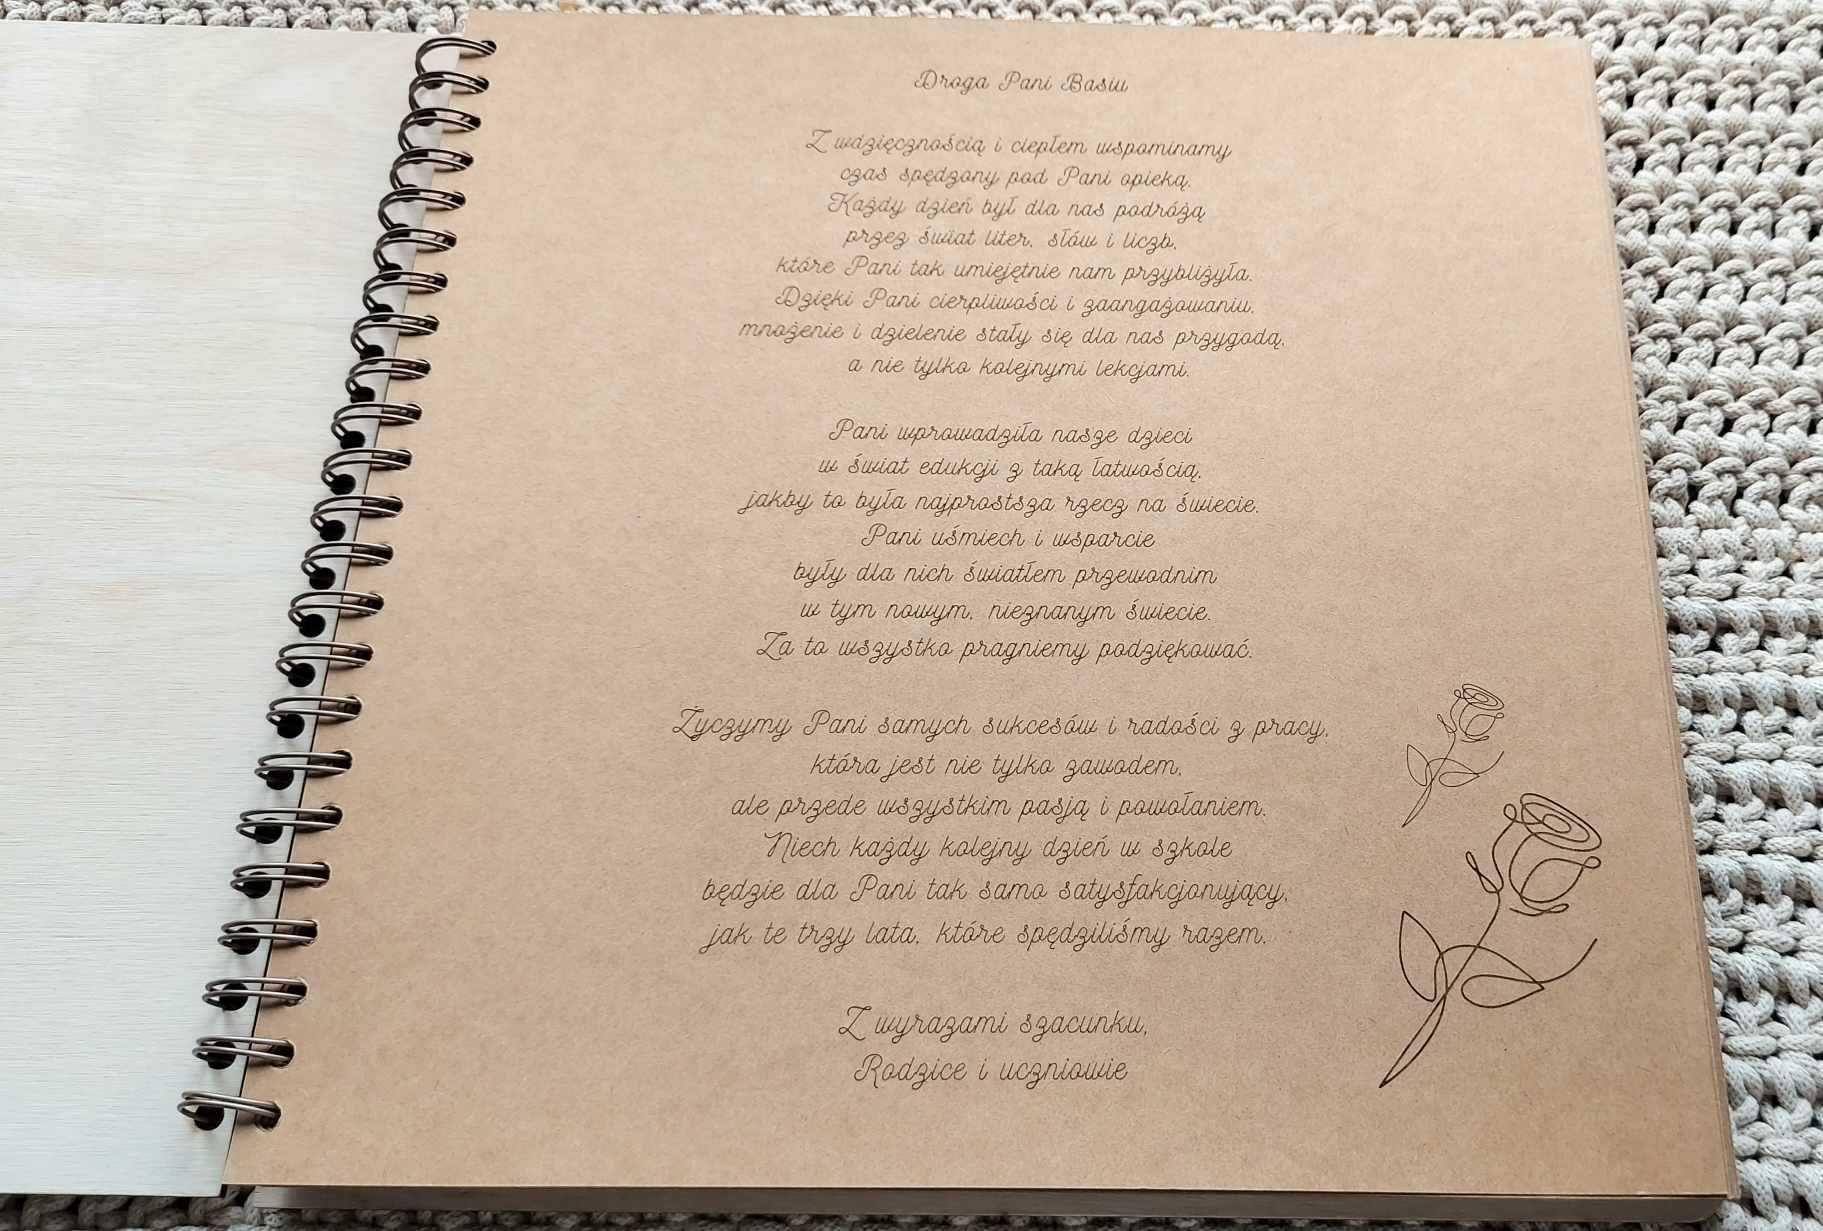 Droga Pani Basiu
Z wdzięcznością i ciepłem wspominamy
czas spędzony pod Pani opieką.
Każdy dzień był dla nas podróżą
przez świat liter, słów i liczb,
które Pani tak umiejętnie nam przybliżyła.
Dzięki Pani cierpliwości i zaangażowaniu,
mnożenie i dzielenie stały się dla nas przygodą,
a nie tylko kolejnymi lekcjami.
Pani wprowadziła nasze dzieci
w świat edukcji z taką łatwością,
jakby to była najprostsza rzecz na świecie.
Pani uśmiech i wsparcie
były dla nich światłem przewodnim
w tym nowym, nieznanym świecie.
Za to wszystko pragniemy podziękować.
Życzymy Pani samych sukcesów i radości z pracy,
która jest nie tylko zawodem,
ale przede wszystkim pasją i powołaniem.
Niech każdy kolejny dzień w szkole
będzie dla Pani tak samo satysfakcjonujący,
jak te trzy lata, które spędziliśmy razem.
Z wyrazami szacunku,
Rodzice i uczniowie